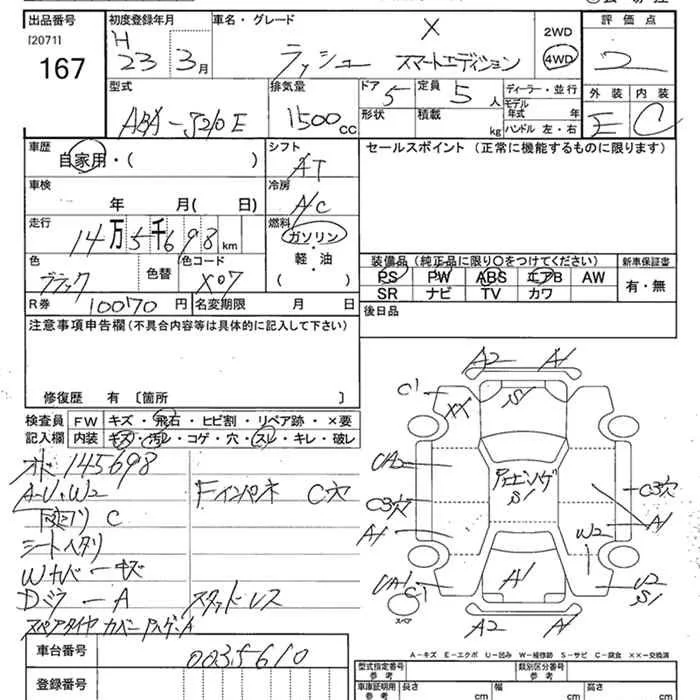 出品番号 初度登録年月 車名・グレード 評価点
[2071] H X 2WD
167 23 3月 ラッシュ スマートエディション 4WD 2
型式 排気量 ドア 定員 ディーラー・並行 外装 内装
ABA-J210E 1500cc 5 5人 モデル年式 年 E C
形状 積載 kg ハンドル 左・右
車歴 シフト セールスポイント (正常に機能するものに限ります)
自家用・( ) AT
車検 冷房
年 月( 日) A/C
走行 燃料
14万5千698km ガソリン
色 色替 色コード ・軽・油 装備品 (純正品に限り〇をつけてください) 新車保証書
ブラック X07 ( ) PS PW ABS エアB AW 有・無
R券 10070円 名変期限 月 日 SR ナビ TV カワ
注意事項申告欄 (不具合内容等は具体的に記入して下さい) 後日品
修復歴 有 〔箇所 〕
検査員 FW キズ・飛石・ヒビ割・リペア跡・×要
記入欄 内装 キズ・汚レ・コゲ・穴・スレ・キレ・破レ
145698
A-U・W2 Fインパネ C穴
下廻り C
シートヘタリ
Wカバーキズ
Dミラー A スタッドレス
スペアタイヤカバー A
A2 A1
C1 XX S1
UA2 S1
C3穴 C3穴
A1 A1
W2
UA1 C1 A1 U2 S1
スペア A2 A1
A-キズ E-エクボ U-凹み W-補修跡 S-サビ C-腐食 XX-交換済
車台番号 0035610
登録番号
型式指定番号 参考 類別区分番号 参考
車庫証明用 参考 長さ cm 幅 cm 高さ cm